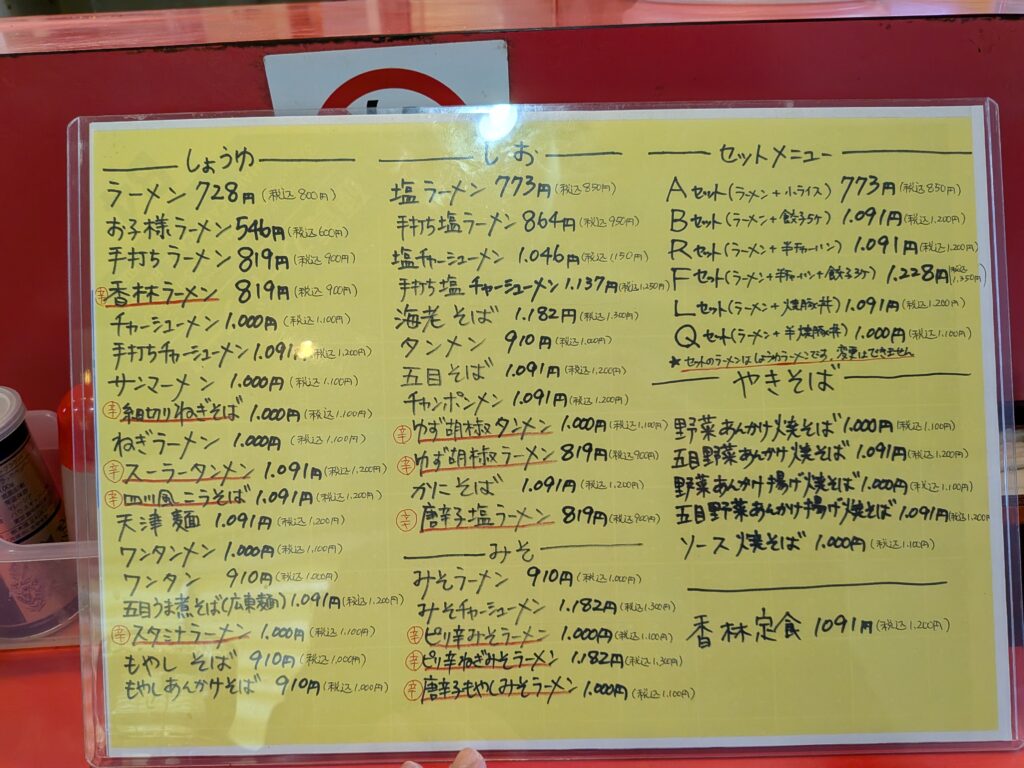 しょうゆ
ラーメン 728円(税込800円)
お子様ラーメン 546円(税込600円)
手打ちラーメン 819円(税込900円)
辛 香林ラーメン 819円(税込900円)
チャーシューメン 1.000円(税込1.100円)
手打ちチャーシューメン 1.091円(税込1.200円)
サンマーメン 1.000円(税込1.100円)
辛 細切りねぎそば 1.000円(税込1.100円)
ねぎラーメン 1.000円(税込1.100円)
辛 スーラータンメン 1.091円(税込1.200円)
辛 四川風こうそば 1.091円(税込1.200円)
天津麺 1.091円(税込1.200円)
ワンタンメン 1.000円(税込1.100円)
ワンタン 910円(税込1.000円)
五目うま煮そば(広東麺) 1.091円(税込1.200円)
辛 スタミナラーメン 1.000円(税込1.100円)
もやし そば 910円(税込1.000円)
もやしあんかけそば 910円(税込1.000円)
しお
塩ラーメン 773円(税込850円)
手打ち塩ラーメン 864円(税込950円)
塩チャーシューメン 1.046円(税込1.150円)
手打ち塩チャーシューメン 1.137円(税込1.250円)
海老そば 1.182円(税込1.300円)
タンメン 910円(税込1.000円)
五目そば 1.091円(税込1.200円)
チャンポンメン 1.091円(税込1.200円)
辛 ゆず胡椒タンメン 1.000円(税込1.100円)
辛 ゆず胡椒ラーメン 819円(税込900円)
かにそば 1.091円(税込1.200円)
辛 唐辛子塩ラーメン 819円(税込900円)
みそ
みそラーメン 910円(税込1.000円)
みそチャーシューメン 1.182円(税込1.300円)
辛 ピリ辛みそラーメン 1.000円(税込1.100円)
辛 ピリ辛ねぎみそラーメン 1.182円(税込1.300円)
辛 唐辛子もやしみそラーメン 1.000円(税込1.100円)
セットメニュー
Aセット(ラーメン+小ライス) 773円(税込850円)
Bセット(ラーメン+餃子5ケ) 1.091円(税込1.200円)
Rセット(ラーメン+半チャーハン) 1.091円(税込1.200円)
Fセット(ラーメン+半チャーハン+餃子3ケ) 1.228円(税込1.350円)
Lセット(ラーメン+焼豚丼) 1.091円(税込1.200円)
Qセット(ラーメン+半焼豚丼) 1.000円(税込1.100円)
★セットのラーメンはしょうゆラーメンです。変更はできません
やきそば
野菜あんかけ焼そば 1.000円(税込1.100円)
五目野菜あんかけ焼そば 1.091円(税込1.200円)
野菜あんかけ揚げ焼そば 1.000円(税込1.100円)
五目野菜あんかけ揚げ焼そば 1.091円(税込1.200円
ソース焼そば 1.000円(税込1.100円)
香林定食 1091円(税込1.200円)